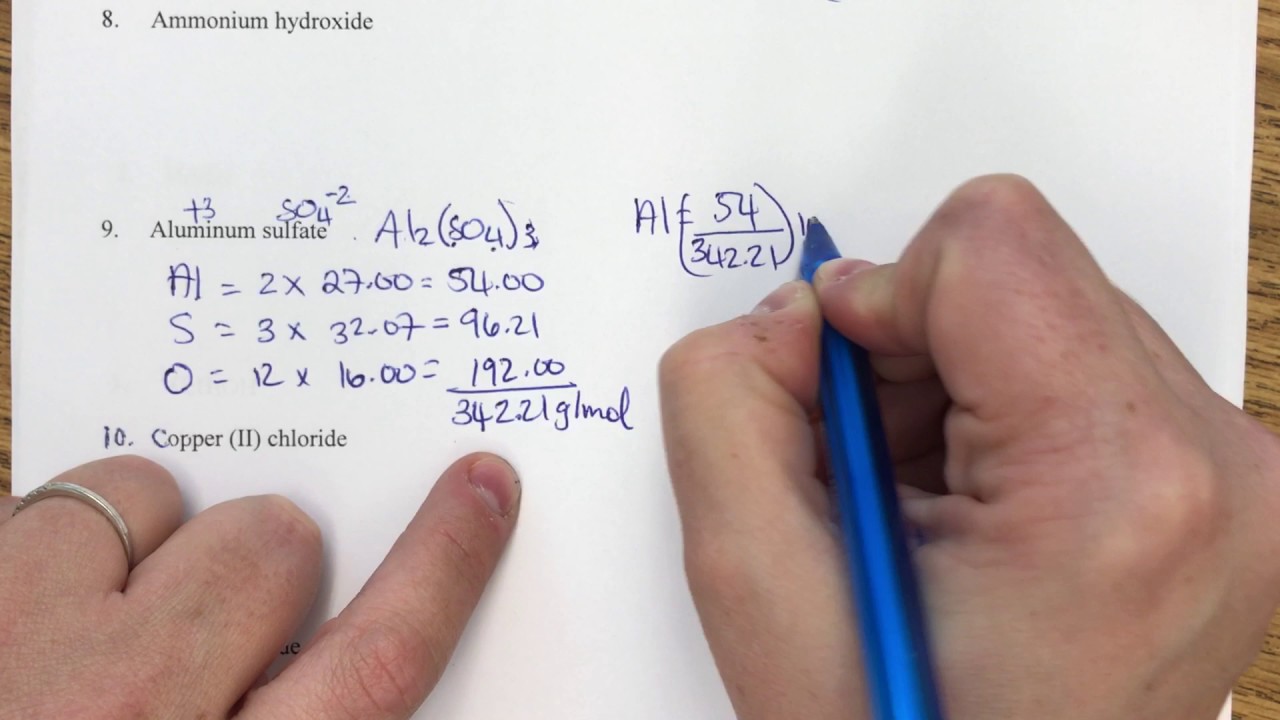 8. Ammonium hydroxide
+3 SO4 -2
9. Aluminum sulfate . Al2(SO4)3
Al = 2 x 27.00 = 54.00
S = 3 x 32.07 = 96.21
O = 12 x 16.00 = 192.00
342.21 g/mol
Al = (54
342.21)
10. Copper (II) chloride